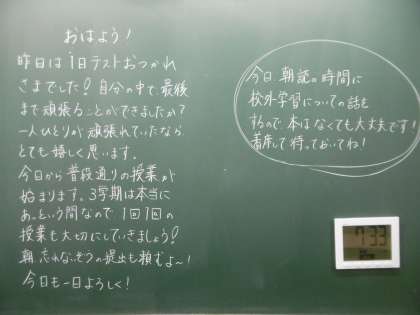 おはよう!
昨日は1日テストおつかれ
さまでした!自分の中で最後
まで頑張ることができましたか?
一人ひとりが頑張れていたなら
とても嬉しく思います。
今日から普段通りの授業が
始まります。3学期は本当に
あっという間なので1回1回の
授業も大切にしていきましょう!
朝 忘れないぞうの提出も頼むよ〜!
今日も一日よろしく!
今日 朝読の時間に
校外学習についての話を
するので 本はなくても大丈夫です!
着席して待っておいてね!
7:33